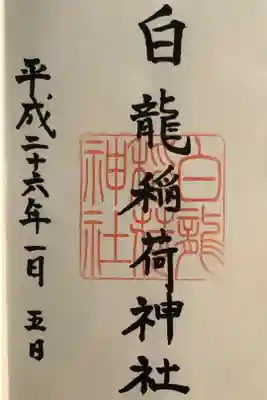 白龍稲荷神社
白龍
稲荷
神社
平成二十六年一日五日